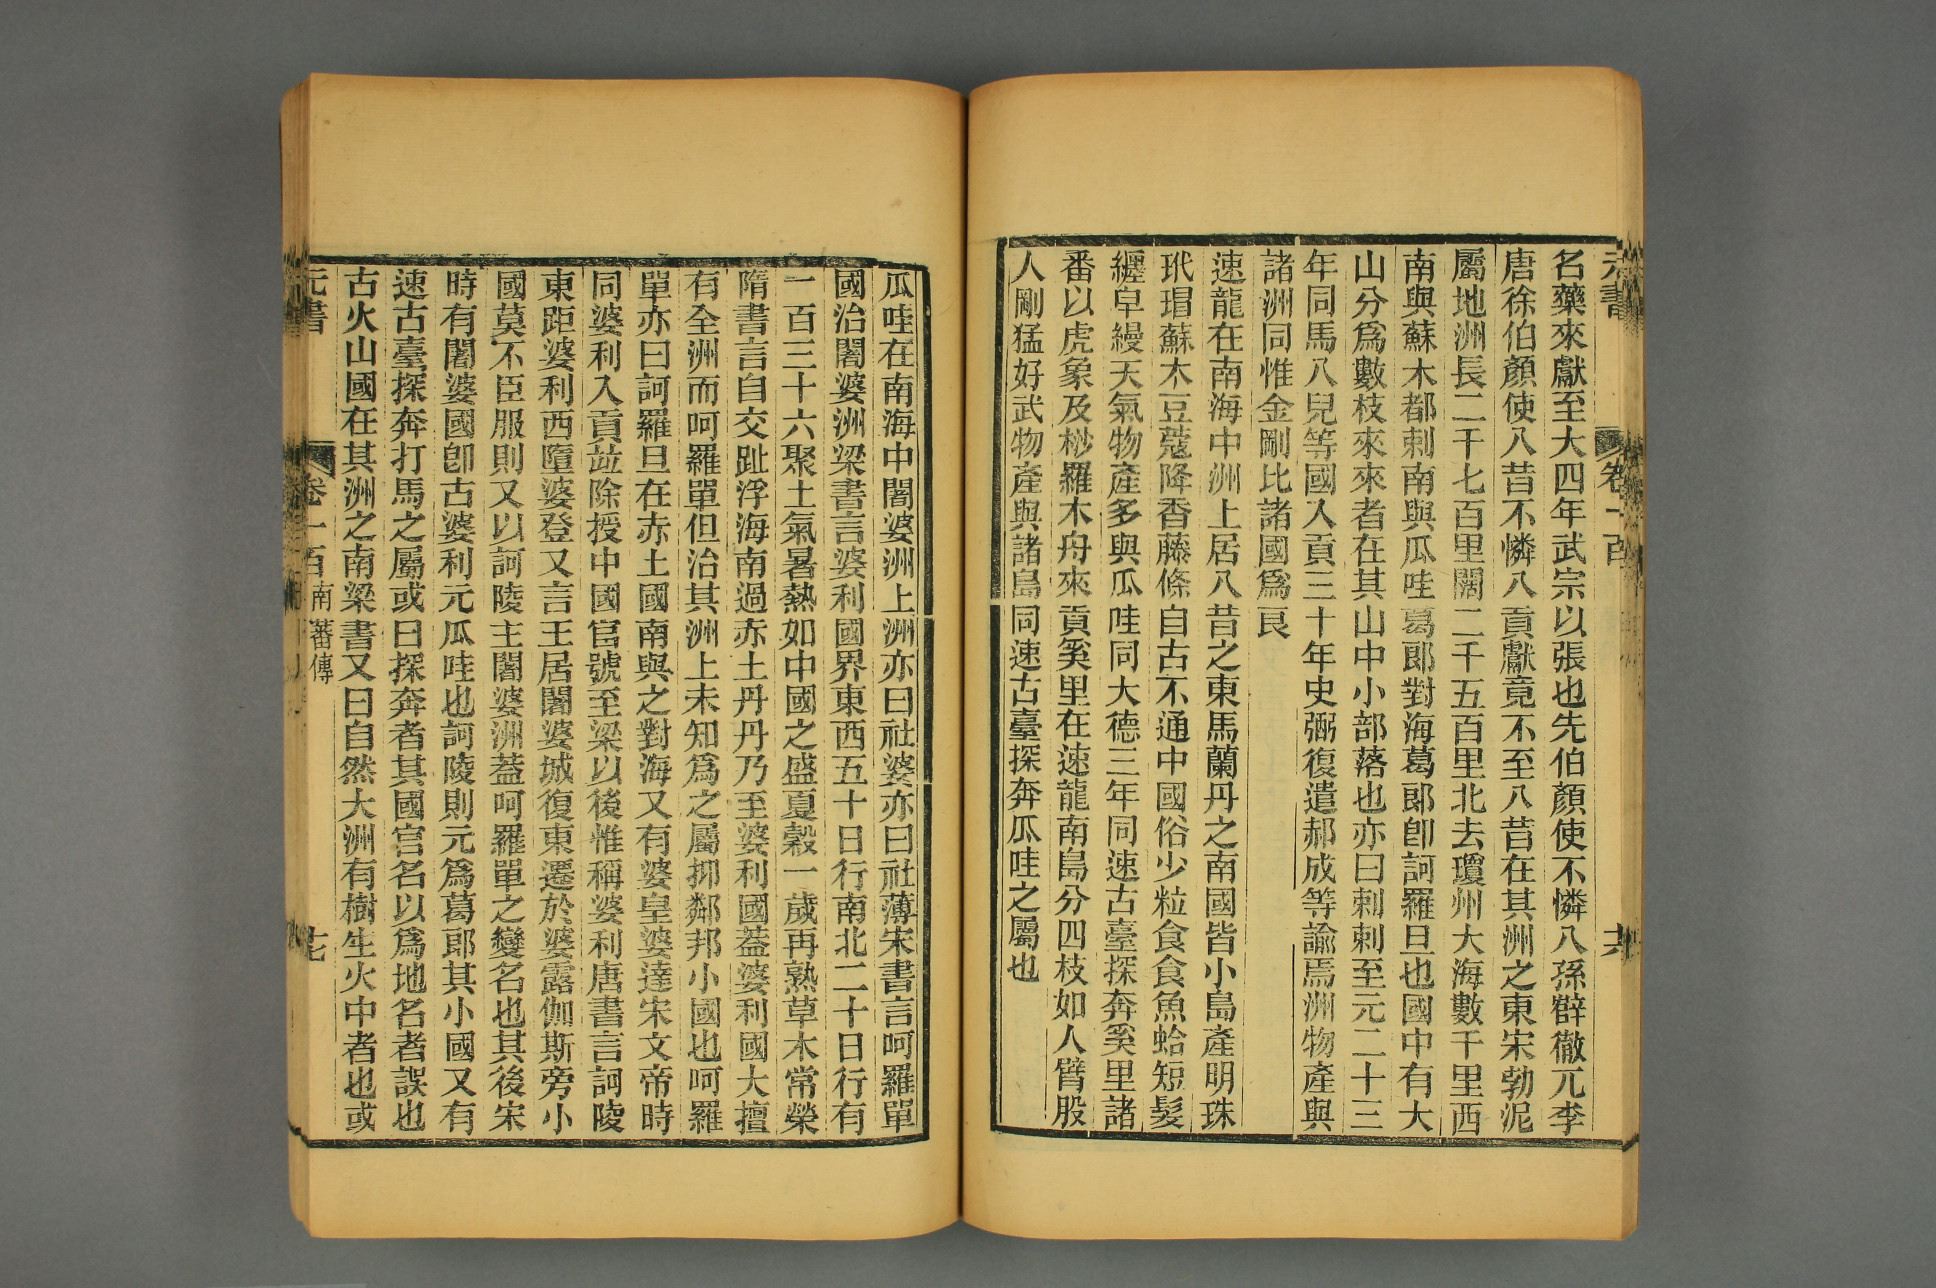 元書
卷一百
共
名藥來獻至大四年武宗以張也先伯顏使不憐八孫薛徹兀李
唐徐伯顏使八昔不憐八貢獻竟不至八昔在其洲之東宋勃泥
屬地洲長二千七百里闊二千五百里北去瓊州大海數千里西
南與蘇木都剌南與瓜哇葛郎對海葛郎卽訶羅旦也國中有大
山分爲數枝來來者在其山中小部落也亦曰剌剌至元二十三
年同馬八兒等國入貢三十年史弼復遣郝成等諭焉洲物產與
諸洲同惟金剛比諸國爲良
速龍在南海中洲上居八昔之東馬蘭丹之南國皆小島產明珠
玳瑁蘇木豆蔻降香藤條自古不通中國俗少粒食食魚蛤短髮
纒皁縵天氣物產多與瓜哇同大德三年同速古臺探奔奚里諸
番以虎象及桫羅木舟來貢奚里在速龍南島分四枝如人臂股
人剛猛好武物產與諸島同速古臺探奔瓜哇之屬也
瓜哇在南海中闍婆洲上洲亦曰社婆亦曰社薄宋書言呵羅單
國治闍婆洲梁書言婆利國界東西五十日行南北二十日行有
一百三十六聚土氣暑熱如中國之盛夏穀一歲再熟草木常榮
隋書言自交趾浮海南過赤土丹丹乃至婆利國蓋婆利國大擅
有全洲而呵羅單但治其洲上未知爲之屬抑鄰邦小國也呵羅
單亦曰訶羅旦在赤土國南與之對海又有婆皇婆達宋文帝時
同婆利入貢竝除授中國官號至梁以後惟稱婆利唐書言訶陵
東距婆利西墮婆登又言王居闍婆城復東遷於婆露伽斯旁小
國莫不臣服則又以訶陵主闍婆洲蓋呵羅單之變名也其後宋
時有闍婆國卽古婆利元瓜哇也訶陵則元爲葛郎其小國又有
速古臺探奔打馬之屬或曰探奔者其國官名以爲地名者誤也
古火山國在其洲之南梁書又曰自然大洲有樹生火中者也或
元書
卷一百
南蕃傳
七